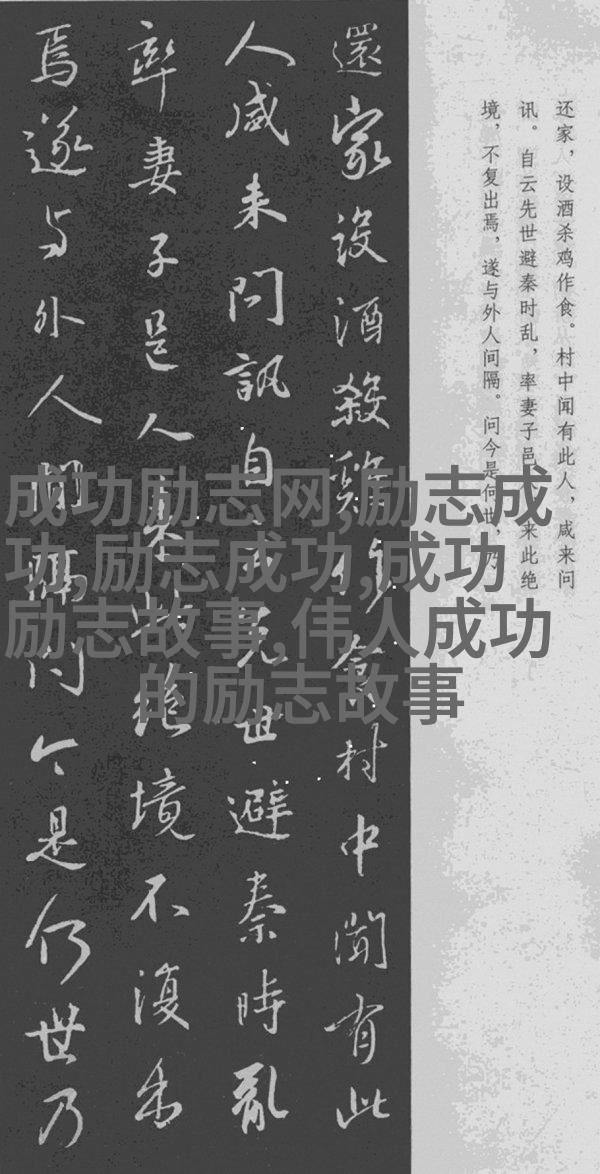 还家，设酒杀鸡作食。村中闻有此人，咸来问
讯。自云先世避秦时乱，率妻子邑来此绝
境，不复出焉，遂与外人间隔。问今是何世，乃
還家設酒殺雞作食村中聞有此
人咸来問訊自云先世避秦時亂
率妻子邑人来此絶境不復出
焉遂与外人間隔问今是何世乃
成功励志网,励志成
功,励志成功,成功
励志故事,伟人成功
的励志故事